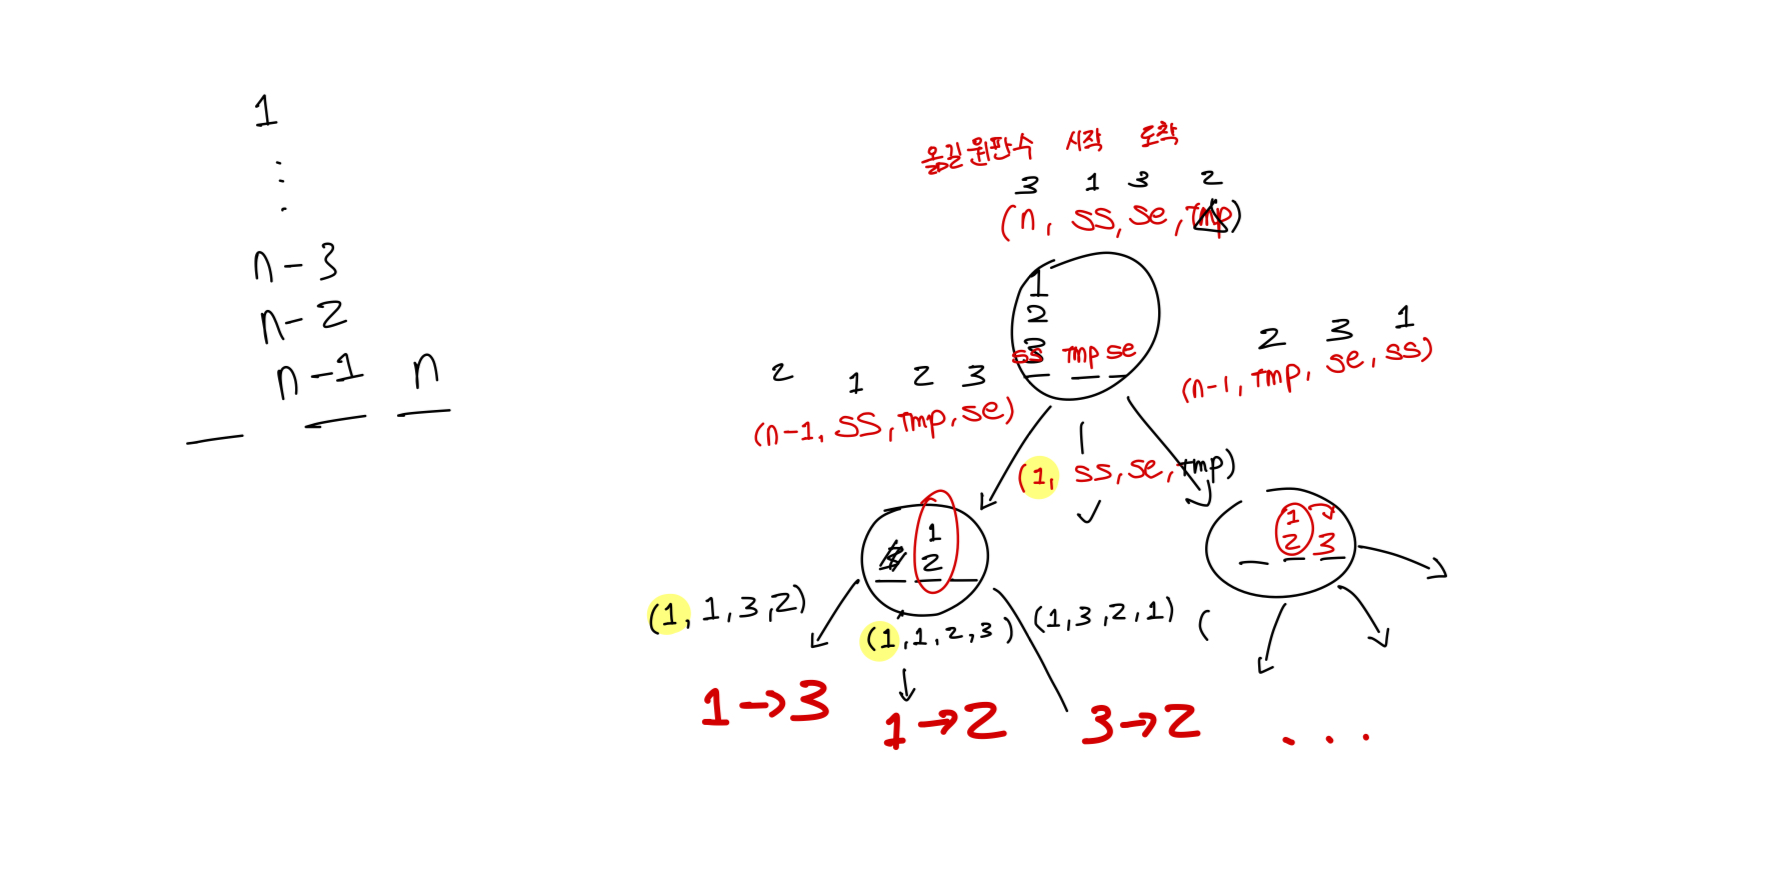 1
⋮
n-3
n-2
n-1 n
옮길 원판수 시작 도착
3 1 3 2
(n, ss, se, tmp)
1
2
3
ss tmp se
2 1 2 3
(n-1, ss, tmp, se)
2 3 1
(n-1, tmp, se, ss)
(1, ss, se, tmp)
1
2
1
2 3
(1, 1, 3, 2)
(1, 1, 2, 3)
(1, 3, 2, 1)
(
1→3
1→2
3→2
...